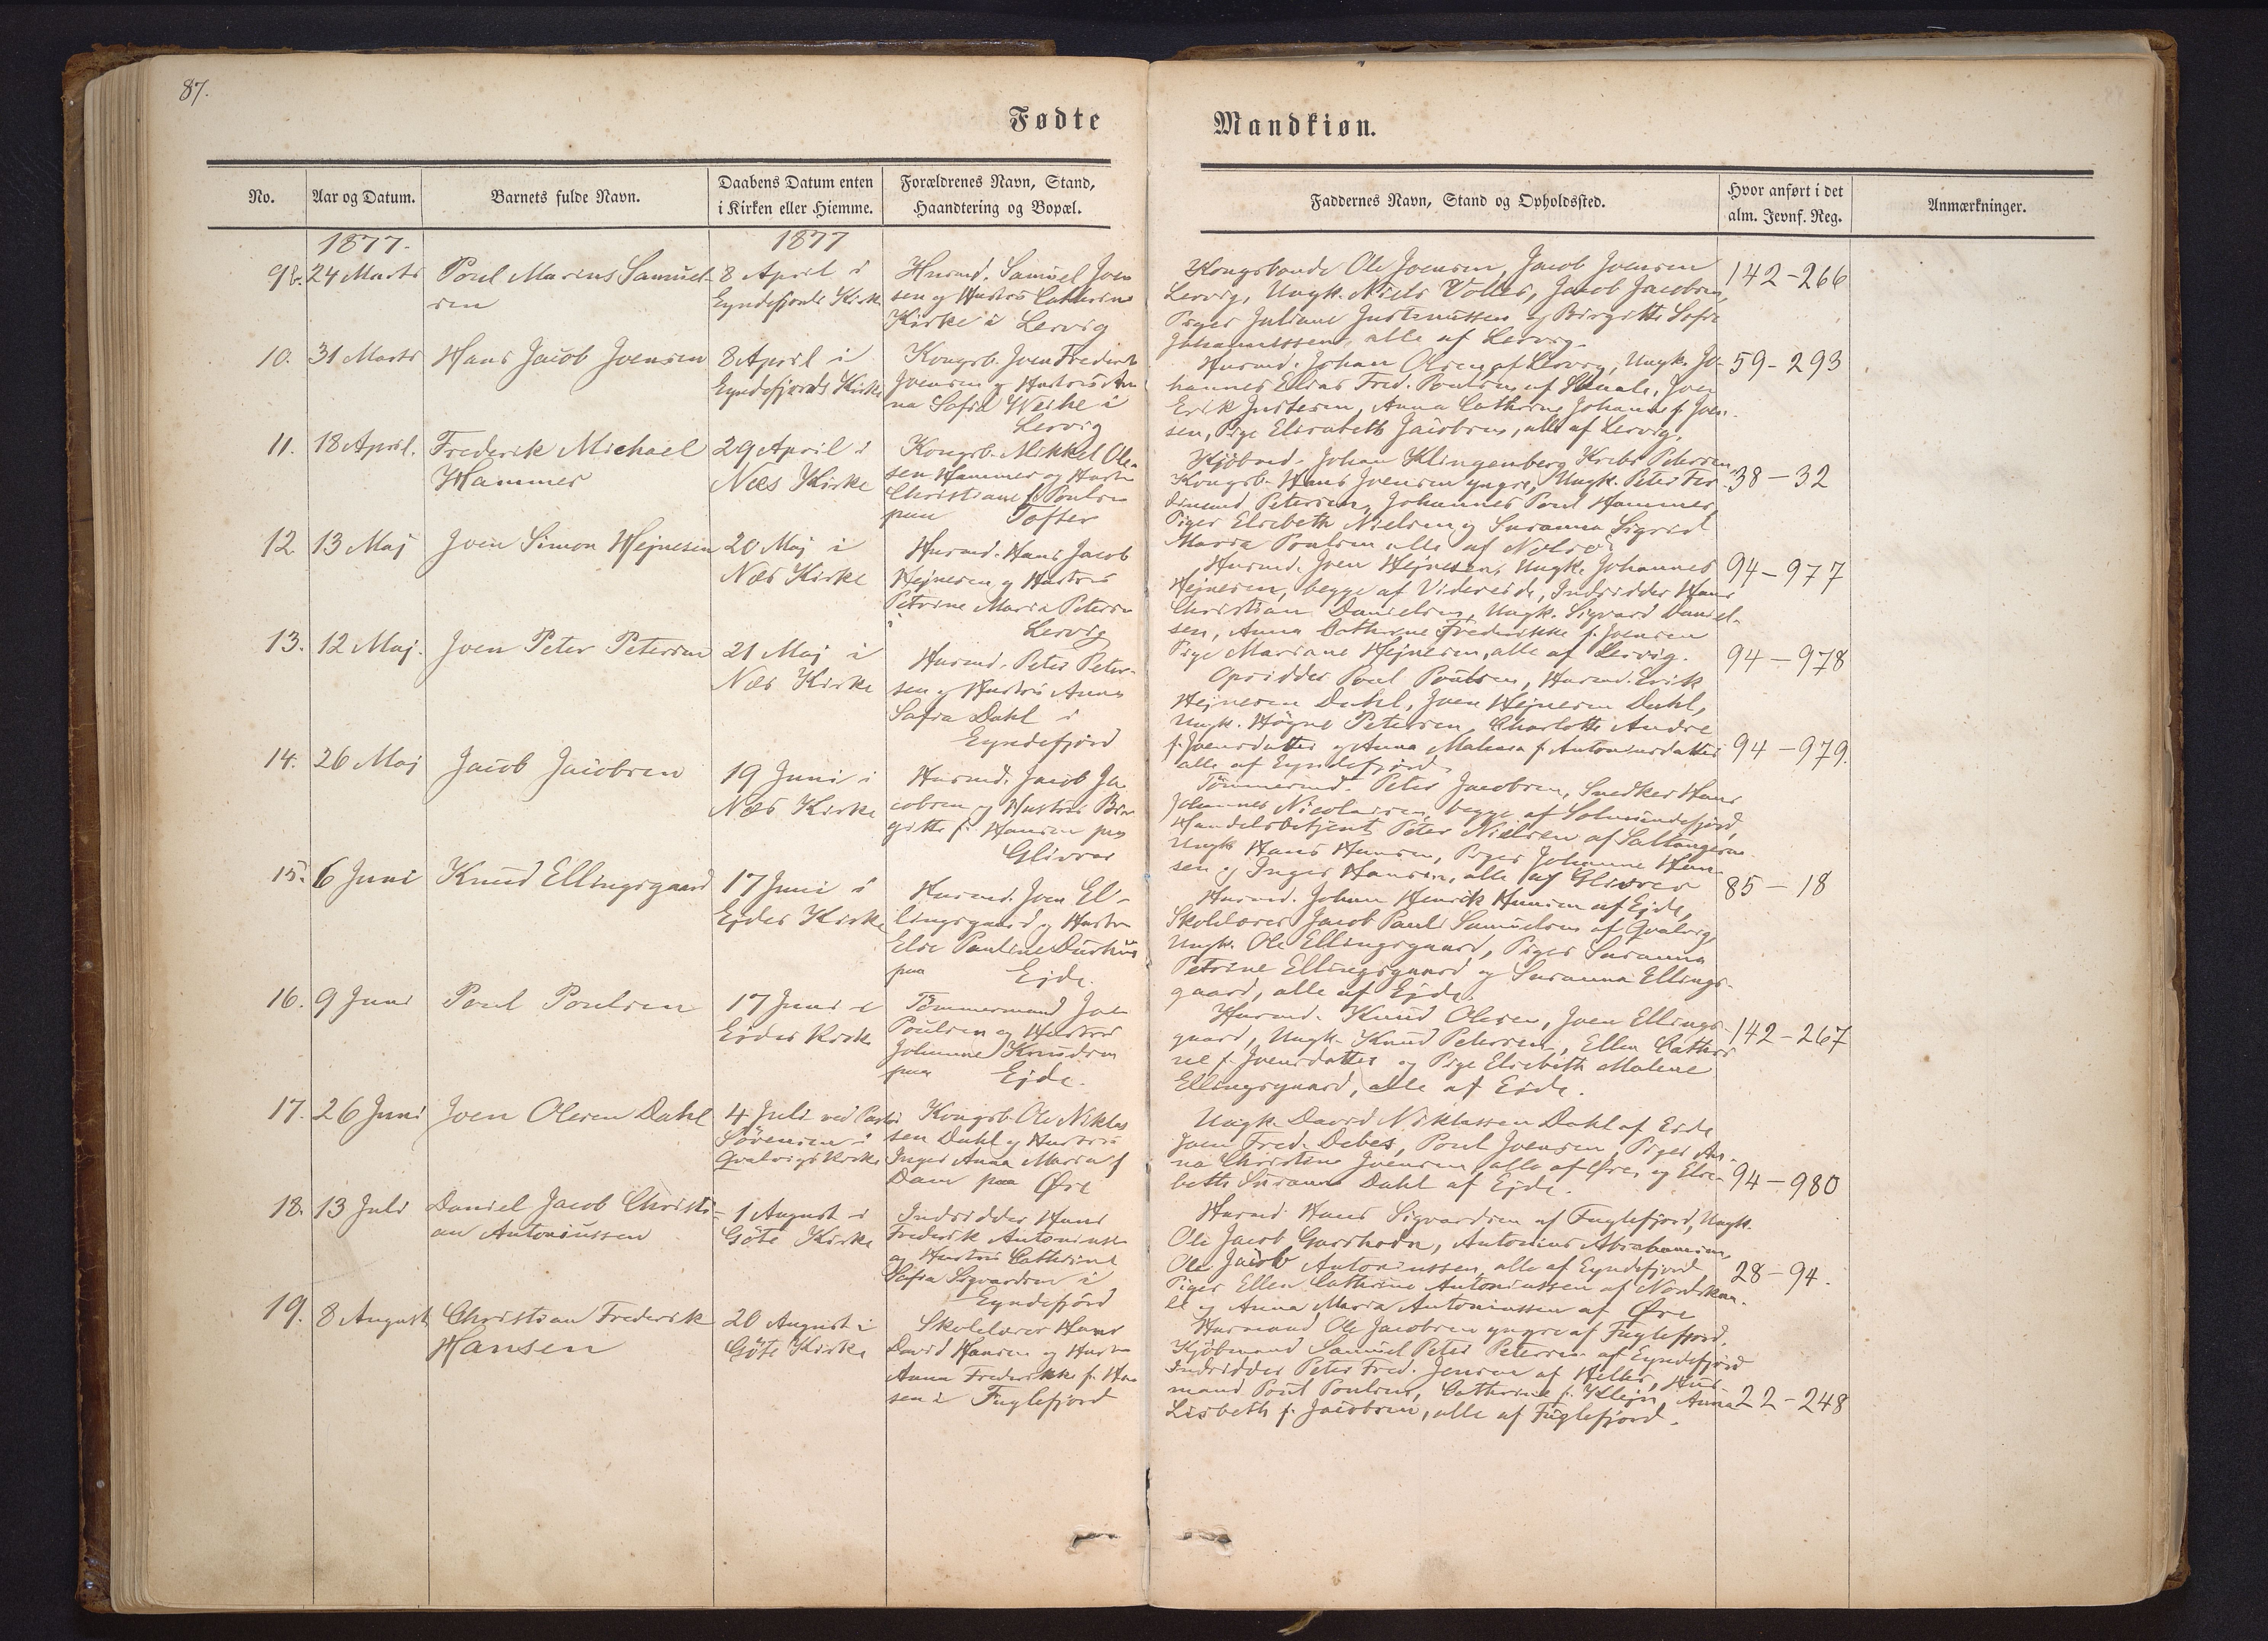 87.
Fødte
Mandkiøn.
No.
Aar og Datum.
Barnets fulde Navn.
Daabens Datum enten
i Kirken eller Hiemme.
Forældrenes Navn, Stand,
Haandtering og Bopæl.
Faddernes Navn, Stand og Opholdssted.
Hvor anført i det
alm. Jevnf. Reg.
Anmærkninger.
1877.
1877
9b.
24 Marts
Poul Marius Samuel-
sen
8 April i
Eyndefjords Kirke
Husmd. Samuel Joen
sen og Hustru Cathrine
Kirke i Lervig
Kongsbonde Ole Joensen, Jacob Joensen
Lervig, Ungk. Niels Volles, Jacob Jacobsen,
Piger Juliane Justinussen og Birgitte Sofie
Johannessen, alle af Lervig.
142-266
10.
31 Marts
Hans Jacob Joensen
8 April i
Eyndefjords Kirke
Kongsb. Joen Frederik
Joensen og Hustru An
na Sofia Weihe i
Lervig
Husmd. Johan Olsen af Lervig, Ungk. Jo-
hannes Elias Fred. Poulsen af Skaale, Joen
Erik Justesen, Anna Cathrine Johanne f. Joen-
sen, Pige Elisabeth Jacobsen, alle af Lervig.
59-293
11.
18 April.
Frederik Michael
Hammer
29 April i
Næs Kirke
Kongsb. Mikkel Ole-
sen Hammer og Hustru
Christiane f. Poulsen
paa Tofter
Kjöbmd. Johan Klingenberg Krebs Petersen,
Kongsb. Hans Joensen yngre, Ungk. Peter Fer-
dinand Petersen, Johannes Poul Hammer,
Piger Elsebeth Nielsen og Susanna Sigrid
Maria Poulsen alle af Nolsø
38-32
12.
13 Maj
Joen Simon Hejnesen
20 Maj i
Næs Kirke
Husmd. Hans Jacob
Hejnesen og Hustru
Petrine Maria Petersen
i Lervig
Husmd. Joen Hejnesen, Ungk. Johannes
Hejnesen, begge af Videreide, Indsidder Hans
Christian Danielsen, Ungk. Sigvard Daniel-
sen, Anna Cathrine Frederikke f. Joensen
Pige Mariane Hejnesen, alle af Lervig.
94-977
13.
12 Maj.
Joen Peter Petersen
21 Maj i
Næs Kirke
Husmd. Peter Peter-
sen og Hustru Anna
Sofia Dahl i
Eyndefjord
Opsidder Poul Poulsen, Husmd. Erik
Hejnesen Dahl, Joen Hejnesen Dahl,
Ungk. Högne Petersen, Charlotte Andrea
f. Joensdatter og Anna Malena f. Antoniusdatter
alle af Eyndefjord.
94-978
14.
26 Maj
Jacob Jacobsen
19 Juni i
Næs Kirke
Husmd. Jacob Ja
cobsen og Hustru Bir
gitte f. Hansen paa
Glivrar
Tömmermd. Peter Jacobsen, Snedker Hans
Johannes Nicolaisen, begge af Solmundefjord,
Handelsbetjent Peter Nielsen af Saltangerne
Ungk. Hans Hansen, Piger Johanne Han-
sen og Inger Hansen, alle af Glivrer
94-979.
15.
6 Juni
Knud Ellingsgaard
17 Juni i
Ejdes Kirke
Husmd. Joen El-
lingsgaard og Hustru
Else Pauline Durhuus
paa Ejde.
Husmd. Johan Henrik Hansen af Ejde,
Skolelærer Jacob Pauli Samuelsen af Qvalvig,
Ungk. Ole Ellingsgaard, Piger Susanna
Petrine Ellingsgaard og Susanna Ellings-
gaard, alle af Ejde.
85-18
16.
9 Juni
Poul Poulsen
17 Juni i
Ejdes Kirke
Tömmermand Joen
Poulsen og Hustru
Johanne Knudsen
paa Ejde.
Husmd. Knud Olesen, Joen Ellings-
gaard, Ungk. Knud Petersen, Ellen Cathri
ne f. Joensdatter og Pige Elsebeth Malene
Ellingsgaard, alle af Ejde.
142-267
17.
26 Juni
Joen Olesen Dahl
4 Juli ved Pastor
Sörensen i
Qvalvigs Kirke
Kongsb. Ole Niklas
sen Dahl og Hustru
Inger Anna Maria f
Dam paa Øre
Ungk. David Niklassen Dahl af Ejde
Joen Fred. Debes, Poul Joensen, Piger An-
na Christine Joensen, alle af Øre, og Else-
beth Susanna Dahl af Ejde.
94-980
18.
13 Juli
Daniel Jacob Christi-
an Antoniussen
1 August i
Göte Kirke
Indsidder Hans
Frederik Antoniussen
og Hustru Cathrine
Sofia Sigvardsen i
Eyndefjörd
Husmd. Hans Sigvardsen af Fuglefjord, Ungk.
Ole Jacob Gardhodn, Antonius Abrahamsen,
Ole Jacob Antoniussen, alle af Eyndefjord
Piger Ellen Cathrine Antoniussen af Nordskaa-
le og Anna Maria Antoniussen af Øre
28-94.
19.
8 August
Christian Frederik
Hansen
20 August i
Göte Kirke
Skolelærer Hans
David Hansen og Hustru
Anna Frederikke f. Han
sen i Fuglefjord
Husmand Ole Jacobsen yngre af Fuglefjord,
Kjöbmand Samuel Peter Petersen af Eyndefjord
Indsidder Peter Fred. Jensen af Heller, Hus-
mand Poul Poulsen, Cathrine f. Klejn, Anna
Lisbeth f. Jacobsen, alle af Fuglefjord.
22-248